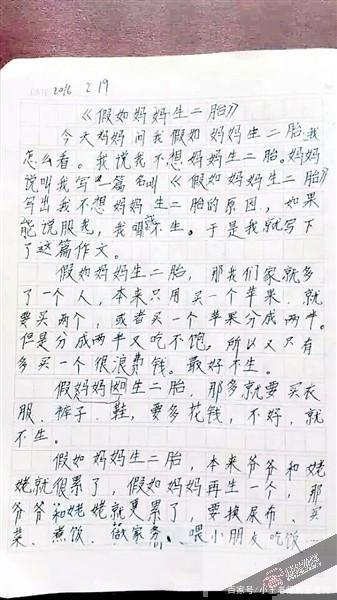 DATE 2016 2 19
《假如妈妈生二胎》
今天妈妈问我假如妈妈生二胎我
怎么看。我说我不想妈妈生二胎。妈妈
说叫我写一篇名叫《假如妈妈生二胎》
写出我不想妈妈生二胎的原因，如果
能说服我，我就不生。于是我就写下
了这篇作文。
假如妈妈生二胎，那我们家就多
了一个人，本来只用买一个苹果，就
要买两个，或者买一个苹果分成两半。
但是分成两半又吃不饱，所以又只有
多买一个很浪费钱。最好不生。
假妈妈如生二胎，那多就要买衣
服、裤子、鞋，要多花钱，不好，就
不生。
假如妈妈生二胎，本来爷爷和姥
姥就很累了，假如妈妈再生一个，那
爷爷和姥姥就更累了，要换尿布、买
菜、煮饭、做家务、喂小朋友吃饭
百家号/小王老